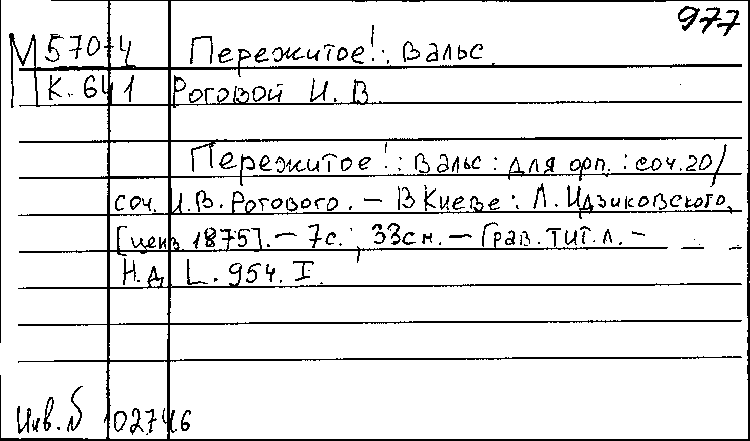 977
М 570-4 Пережитое!: Вальс.
К. 641 Роговой И. В
Пережитое!: Вальс: для орп.: соч. 20/
соч. И.В. Рогового. — В Киеве: Л. Идзиковского,
[ценз. 1875]. — 7с.; 33см. — Грав. тит. л. —
Н.д. L. 954. I.
Инв. № 102746